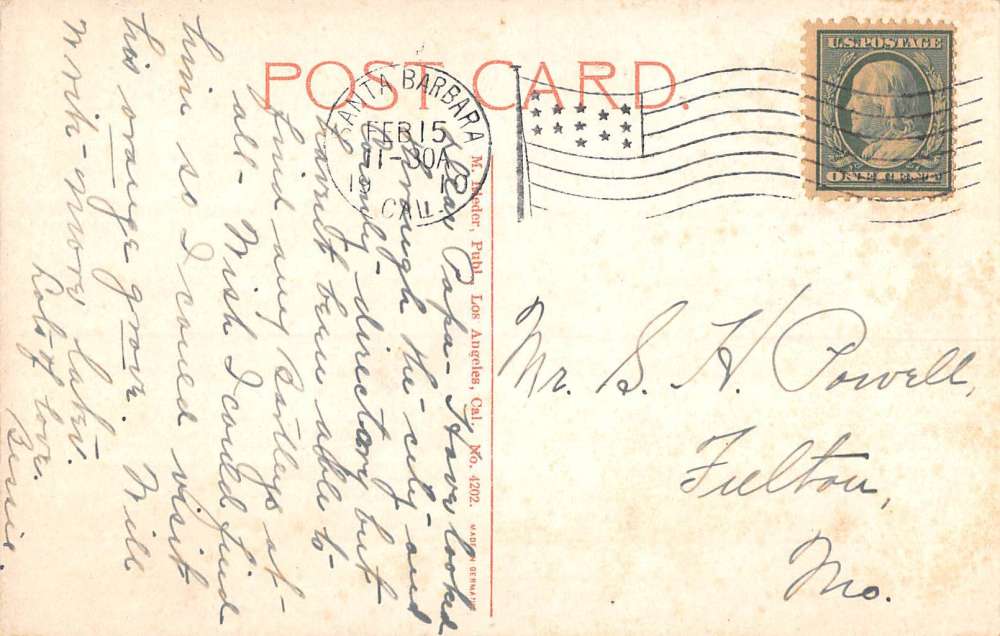 POST CARD.
SANTA BARBARA
FEB 15
11-30A
CAL.
U.S. POSTAGE
ONE CENT
M. Rieder, Publ., Los Angeles, Cal. No. 4202.
MADE IN GERMANY
Dear Papa- Have looked
through the- city- and
county- directory but
havent been able to-
find any Batleys at-
all- Wish I could find
him so I could visit
his orange grove. Will
write- more later.
Lots of love.
Bessie.
Mr. S. H. Powell,
Fulton,
Mo.